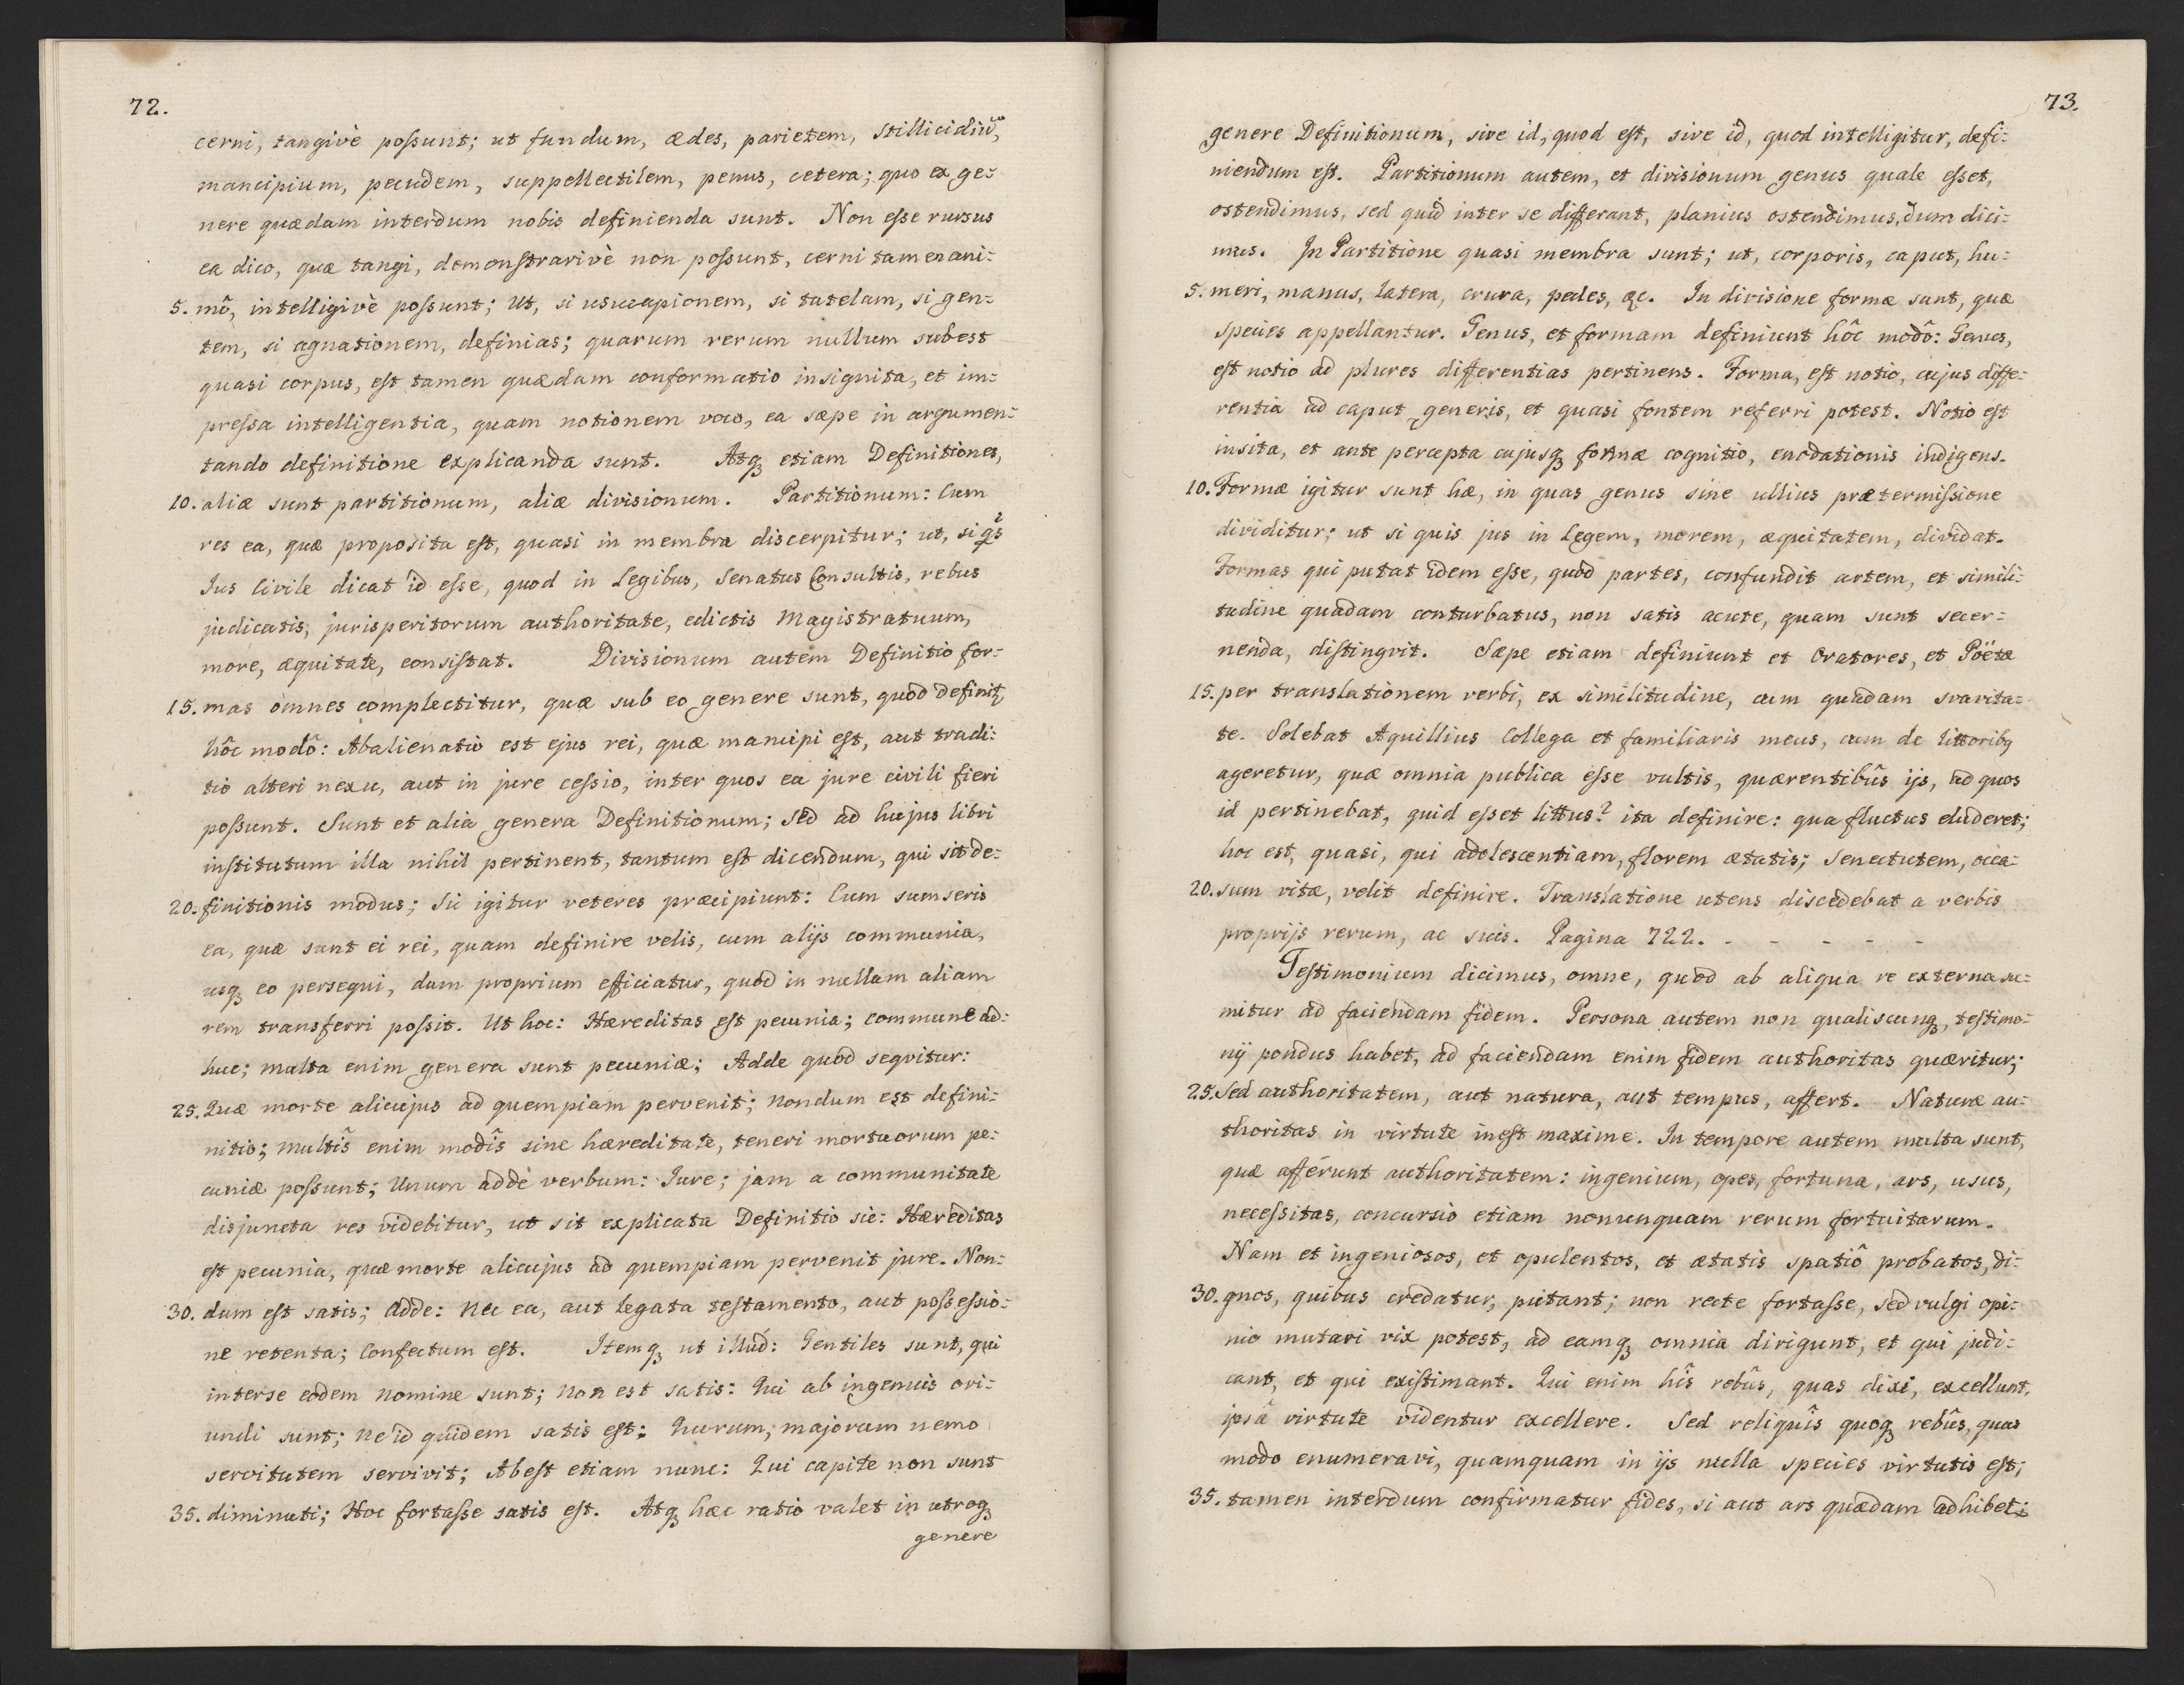 72.
cerni, tangivè possunt; ut fundum, ædes, parietem, stillicidiũ,
mancipium, pecudem, suppellectilem, penus, cetera; quo ex ge=
nere quædam interdum nobis definienda sunt. Non esse rursus
ea dico, quæ tangi, demonstrarivè non possunt, cerni tamen ani=
5. mô, intelligivè possunt; Ut, si usucapionem, si tutelam, si gen=
tem, si agnationem, definias; quarum rerum nullum subest
quasi corpus, est tamen quædam conformatio insignita, et im=
pressa intelligentia, quam notionem voco, ea sæpe in argumen=
tando definitione explicanda sunt. Atqꝫ etiam Definitiones,
10. aliæ sunt partitionum, aliæ divisionum. Partitionum: Cum
res ea, quæ proposita est, quasi in membra discerpitur; ut, si qs
Jus Civile dicat id esse, quod in Legibus, Senatus Consultis, rebus
judicatis, jurisperitorum authoritate, edictis Magistratuum,
more, æquitate, consistat. Divisionum autem Definitio for=
15. mas omnes complectitur, quæ sub eo genere sunt, quod definitꝫ
hôc modô: Abalienatio est ejus rei, quæ mancipi est, aut tradi=
tio alteri nexu, aut in jure cessio, inter quos ea jure civili fieri
possunt. Sunt et alia genera Definitionum; sed ad hujus libri
institutum illa nihil pertinent, tantum est dicendum, qui sit de=
20. finitionis modus; Sic igitur veteres præcipiunt: Cum sumseris
ea, quæ sunt ei rei, quam definire velis, cum alijs communia,
usqꝫ eo persequi, dum proprium efficiatur, quod in nullam aliam
rem transferri possit. Ut hoc: Hæreditas est pecunia; commune ad=
huc; multa enim genera sunt pecuniæ; Adde quod seqvitur:
25. Quæ morte alicujus ad quempiam pervenit; nondum est defini=
nitio; multîs enim modîs sine hæreditate, teneri mortuorum pe=
cuniæ possunt; Unum adde verbum: Jure; jam a communitate
disjuncta res videbitur, ut sit explicata Definitio sic: Hæreditas
est pecunia, quæ morte alicujus ad quempiam pervenit jure. Non=
30. dum est satis; adde: nec ea, aut legata testamento, aut possessio=
ne retenta; Confectum est. Itemqꝫ ut illud: Gentiles sunt, qui
interse eodem nomine sunt; non est satis: Qui ab ingenuis ori=
undi sunt; ne id quidem satis est: Quorum, majorum nemo
servitutem servivit; Abest etiam nunc: Qui capite non sunt
35. diminuti; Hoc fortasse satis est. Atqꝫ hæc ratio valet in utroqꝫ
genere
73.
genere Definitionum, sive id, quod est, sive id, quod intelligitur, defi=
niendum est. Partitionum autem, et divisionum genus quale esset,
ostendimus, sed quid inter se differant, planius ostendimus, dum dici=
mus. In Partitione quasi membra sunt; ut, corporis, caput, hu=
5. meri, manus, latera, crura, pedes, &c. In divisione formæ sunt, quæ
species appellantur. Genus, et formam definiunt hôc modô: Genus,
est notio ad plures differentias pertinens. Forma, est notio, cujus diffe=
rentia ad caput generis, et quasi fontem referri potest. Notio est
insita, et ante percepta cujusqꝫ formæ cognitio, enodationis indigens.
10. Formæ igitur sunt hæ, in quas genus sine ullius prætermissione
dividitur; ut si quis jus in Legem, morem, æquitatem, dividat.
Formas qui putat idem esse, quod partes, confundit artem, et simili=
tudine quadam conturbatus, non satis acute, quam sunt secer=
nenda, distingvit. Sæpe etiam definiunt et Oratores, et Poëtæ
15. per translationem verbi, ex similitudine, cum quadam svavita=
te. Solebat Aquillius Collega et familiaris meus, cum de littoribꝫ
ageretur, quæ omnia publica esse vultis, quærentibûs ijs, ad quos
id pertinebat, quid esset littus? ita definire: qua fluctus eluderet;
hoc est, quasi, qui adolescentiam, florem ætatis; Senectutem, occa=
20. sum vitæ, velit definire. Translatione utens discedebat a verbis
proprijs rerum, ac suis. Pagina 722. - - - - -
Testimonium dicimus, omne, quod ab aliqua re externa su=
mitur ad faciendam fidem. Persona autem non qualiscunqꝫ, testimo=
nij pondus habet, ad faciendam enim fidem authoritas quæritur;
25. Sed authoritatem, aut natura, aut tempus, affert. Naturæ au=
thoritas in virtute inest maxime. In tempore autem multa sunt,
quæ afferunt authoritatem: ingenium, opes, fortuna, ars, usus,
necessitas, concursio etiam nonunquam rerum fortuitarum.
Nam et ingeniosos, et opulentos, et ætatis spatiô probatos, di=
30. gnos, quibus credatur, putant; non recte fortasse, sed vulgi opi=
nio mutari vix potest, ad eamqꝫ omnia dirigunt, et qui judi=
cant, et qui existimant. Qui enim hîs rebûs, quas dixi, excellunt,
ipsâ virtute videntur excellere. Sed reliquîs quoqꝫ rebûs, quas
modo enumeravi, quamquam in ijs nulla species virtutis est;
35. tamen interdum confirmatur fides, si aut ars quædam adhibet=